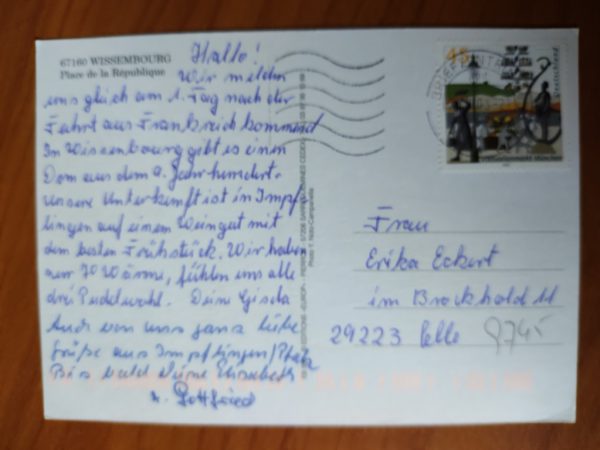 67160 WISSEMBOURG
Place de la République
Hallo!
Wir melden
uns gleich am 1. Tag nach der
Fahrt aus Frankreich kommend
In Wissembourg gibt es einen
Dom aus dem Jahrhundert.
Unsere Unterkunft ist in Impf-
lingen auf einem Weingut mit
dem besten Frühstück. Wir haben
nur Wärme, fühlen uns alle
drei Pudelwohl. Deine Gisela
Auch von uns ganz liebe
Grüße aus Impflingen/Pfalz
Bis bald Deine Elisabeth
u. Gottfried
45
Deutschland
Frau
Erika Eckert
im Brockhold 11
29223 Celle
9745